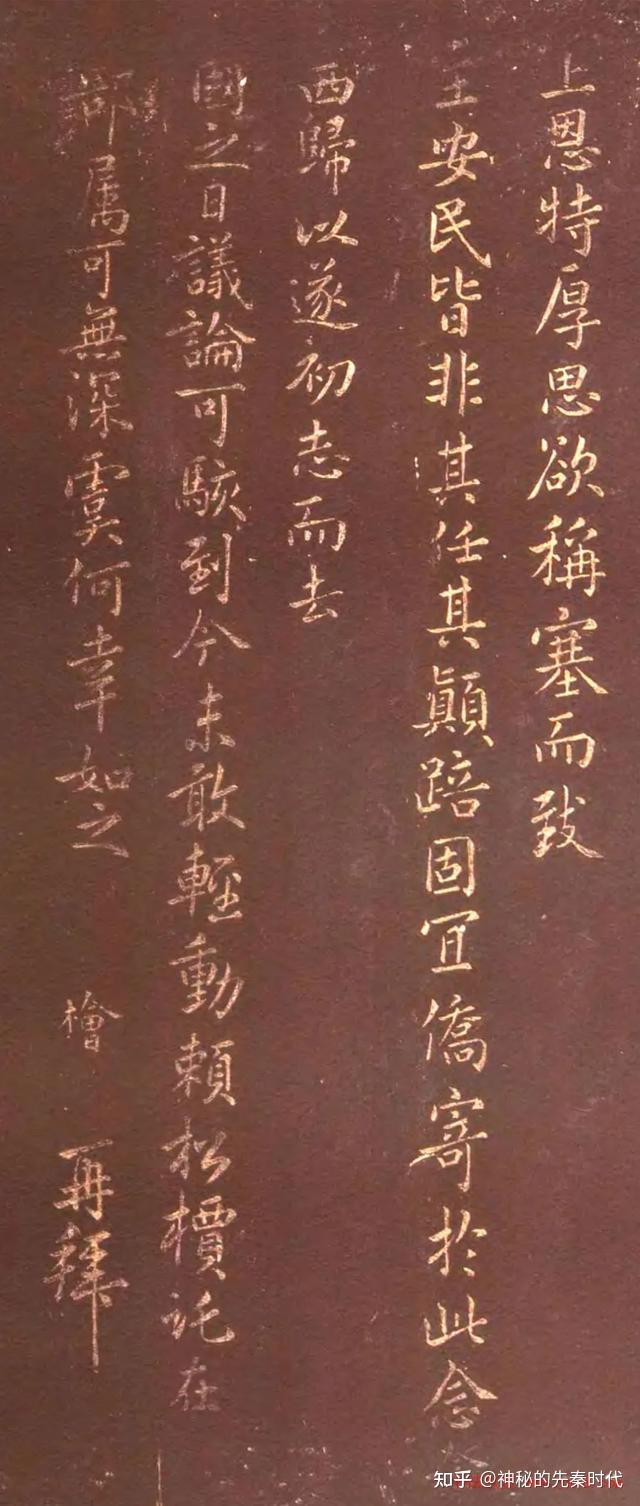 上恩特厚思欲稱塞而致
主安民皆非其任其顛踣固宜僑寄於此念
西歸以遂初志而去
國之日議論可駭到今未敢輕動賴松檟託在
鄰屬可無深虞何幸如之 檜 再拜
知乎 @神秘的先秦时代